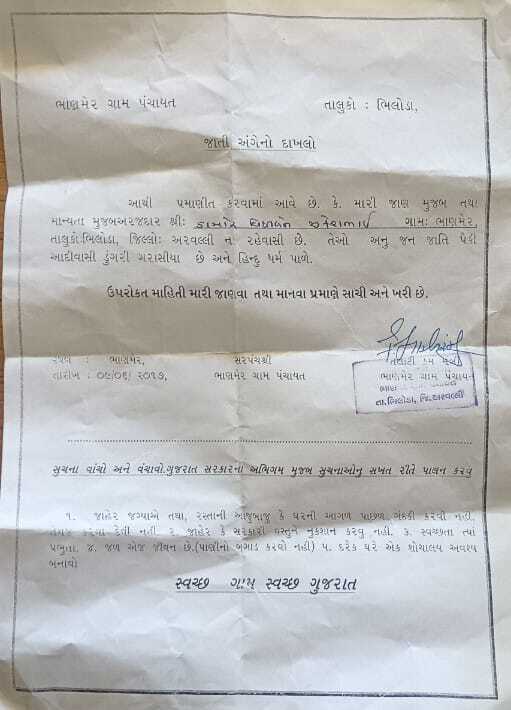 ભાણમેર ગ્રામ પંચાયત તાલુકો : ભિલોડા,
જાતી અંગેનો દાખલો
આથી પ્રમાણીત કરવામાં આવે છે. કે. મારી જાણ મુજબ તથા
માન્યતા મુજબઅરજદાર શ્રી: ગામ: ભાણમેર,
તાલુકો:ભિલોડા, જિલ્લો: અરવલ્લી ન રહેવાસી છે. તેઓ અનુ જન જાતિ પૈકી
આદીવાસી ડુંગરી ગરાસીયા છે અને હિન્દુ ધર્મ પાળે.
ઉપરોકત માહિતી મારી જાણવા તથા માનવા પ્રમાણે સાચી અને ખરી છે.
સ્થળ : ભાણમેર, સરપંચશ્રી તલાટી કમ મંત્રી
તારીખ : ૦૯/૦૬/ ૨૦૧૭, ભાણમેર ગ્રામ પંચાયત ભાણમેર ગ્રામ પંચાયત
તા.ભિલોડા, જિ.અરવલ્લી
સુચના વાંચો અને વંચાવો.ગુજરાત સરકારના અભિગમ મુજબ સુચનાઓનુ સખત રીતે પાલન કરવુ
૧. જાહેર જગ્યાએ તથા, રસ્તાની આજુબાજુ કે ઘરની આગળ પાછળ ગંદકી કરવી નહી.
તેમજ કરવા દેવી નહી. ૨. જાહેર કે સરકારી વસ્તુને નુકશાન કરવુ નહી. ૩. સ્વચ્છતા ત્યાં
પ્રભુતા. ૪. જળ એજ જીવન છે.(પાણીનો બગાડ કરવો નહી) ૫. દરેક ઘરે એક શૌચાલય અવશ્ય
બનાવો
સ્વચ્છ ગામ સ્વચ્છ ગુજરાત